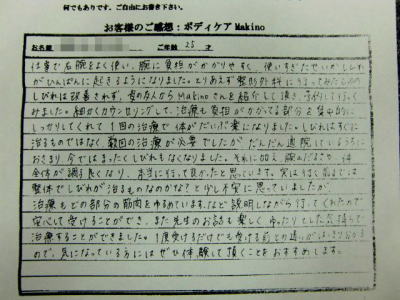 何でもあります。ご自由にお書き下さい。
お客様のご感想：ボディケア Makino
お名前 ご年齢 25 才
仕事で右腕をよく使い、腕に負担がかかりやすく、使いすぎたせいかしびれ
がひんぱんに起きるようになりました。とりあえず整形外科に行ってみたものの
しびれは改善されず、知人からMakinoさんを紹介して頂き、予約して行く
みました。細かくカウンセリングして、治療も負担がかかってる部分を集中的に
しっかりしてくれて1回の治療で体がだいぶ楽になりました。しびれはすぐに
治るものではなく数回の治療が必要でしたがだんだん通院しているうちに
おさまり、今ではまったくしびれもなくなりました。それに加え、腕だけでなく体
全体が調子良くなり、本当に行って良かったと思っています。実は行く前までは
整体でしびれが治るものなのかな？と少し不安に思っていましたが、
治療もどの部分の筋肉をゆるめています、など説明しながら行ってくれたので
安心して受けることができ、また先生のお話も楽しく、ゆったりとした気持ちで
治療することができました。1度受けるだけでも受ける前との違いがはっきり分かる
ので、気になっているようにはぜひ体験して頂くことをおすすめします。